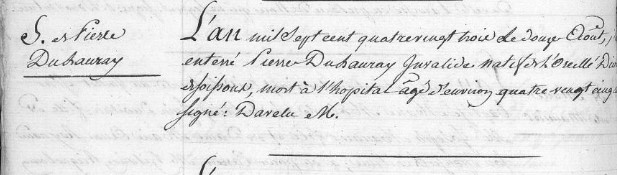 S. de Pierre
Duhauray
L'an mil sept cent quatrevingt trois le douze Août,
enterré Pierre Duhauray Invalide natif de
de soissons, mort à l'hopital âgé d'environ quatre vingt ans
signé: Darelu M.